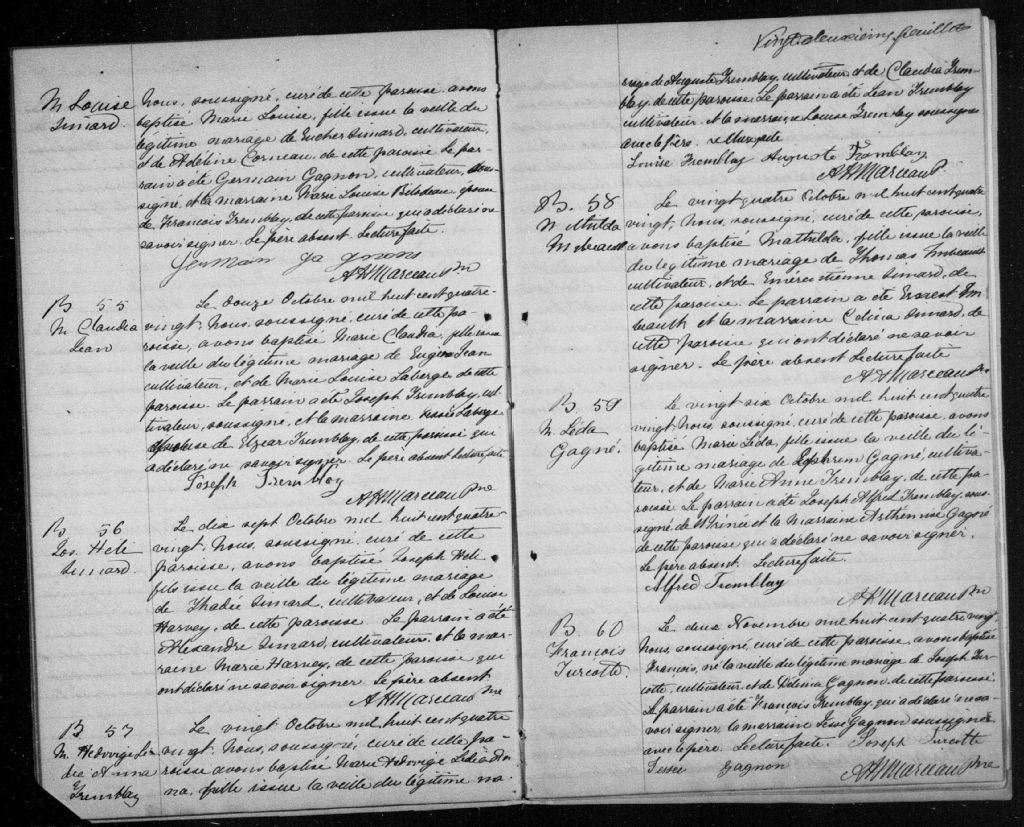 M Louise
Simard.
Nous, soussigné, curé de cette paroisse avons
baptisé Marie Louise, fille issue la veille du
légitime mariage de Eucher Simard, cultivateur,
et de Adeline Corneau, de cette paroisse Le par-
rain a été Germain Gagnon, cultivateur, sous-
signé, et la marraine Marie Louise Bilodeau, épouse
de Francois Tremblay, de cette paroisse qui a déclaré ne
savoir signer. Le père absent. Lecture faite.
Germain gagnons
AHMarceau Ptre
B 55
M. Claudia
Jean
Le douze Octobre mil huit cent quatre-
vingt, Nous, soussigné, curé de cette pa-
roisse, avons baptisé Marie Claudia, fille issue
la veille du légitime mariage de Eugène Jean
cultivateur, et de Marie Louise Laberge de cette
paroisse. Le parrain a été Joseph Tremblay, cul-
tivateur, soussigné, et la marraine Laberge
épouse de Elzéar Tremblay, de cette paroisse qui
a déclaré ne savoir signer. Le père absent Lecture faite
Joseph Tremblay
AHMarceau Ptre
B 56
Jos. Héli
Simard.
Le dix sept Octobre mil huit cent quatre-
vingt, Nous, soussigné, curé de cette
paroisse, avons baptisé Joseph Héli
fils issu la veille du légitime mariage
de Thadée Simard, cultivateur, et de Louise
Harvey, de cette paroisse. Le parrain a été
Alexandre Simard, cultivateur, et la mar-
raine Marie Harvey, de cette paroisse qui
ont déclaré ne savoir signer. Le père absent
AHMarceau Ptre
B 57
M. Hedwidge Li-
dia Anna
Tremblay
Le vingt Octobre mil huit cent quatre
vingt, Nous, soussigné, curé de cette pa-
roisse avons baptisé Marie Hedwidge Lidia An-
na, fille issue la veille du légitime ma-
Vingt deuxième feuillet
riage de Auguste Tremblay, cultivateur, et de Claudia Trem-
blay, de cette paroisse, Le parrain a été Jean Tremblay
cultivateur, et la marraine Louise Tremblay soussignée
avec le père. Lecture faite
Louise Tremblay Auguste Tremblay
AHMarceau P.
B. 58
M Mathilda
Imbeault
Le vingt quatre Octobre mil huit cent quatre
vingt, Nous, soussigné, curé de cette paroisse,
avons baptisé Mathilda, fille issue la veille
du légitime mariage de Thomas Imbeault
cultivateur, et de Emérentienne Simard, de
cette paroisse. Le parrain a été Ernest Im-
beault et la marraine Célina Simard, de
cette paroisse qui ont déclaré ne savoir
signer. Le père absent Lecture faite
AHMarceau Ptre
B. 59
M. Léda
Gagné.
Le vingt six Octobre mil huit cent quatre
vingt, Nous, soussigné, curé de cette paroisse, avons
baptisé Marie Léda, fille issue la veille du lé-
gitime mariage de Ephrem Gagné, cultiva-
teur, et de Marie Anne Tremblay, de cette pa-
roisse. Le parrain a été Joseph Alfred Tremblay, sous-
signé de St Irénée et la Marraine Arthemise Gagné
de cette paroisse qui a déclaré ne savoir signer.
Le père absent. Lecture faite.
Alfred Tremblay
AHMarceau Ptre
B. 60
François
Turcotte.
Le deux Novembre mil huit cent quatre vingt,
Nous, soussigné, curé de cette paroisse, avons baptisé
François, né la veille du légitime mariage de Joseph Tur-
cotte, cultivateur et de Délima Gagnon, de cette paroisse.
Le parrain a été François Tremblay, qui a déclaré ne sa-
voir signer, la marraine Gagnon soussignée
avec le père. Lecture faite. Joseph Turcotte
Gagnon
AHMarceau Ptre